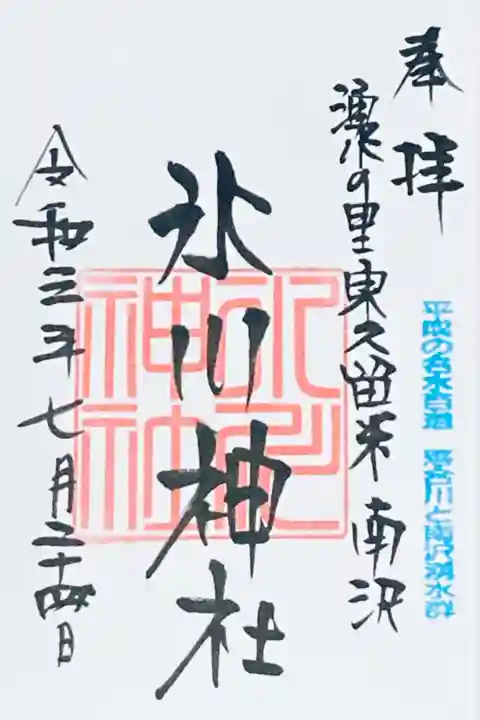 奉拝
湧水の里東久留米 南沢
平成の名水百選 落合川と南沢湧水群
氷川神社
氷川神社
令和三年七月二十四日